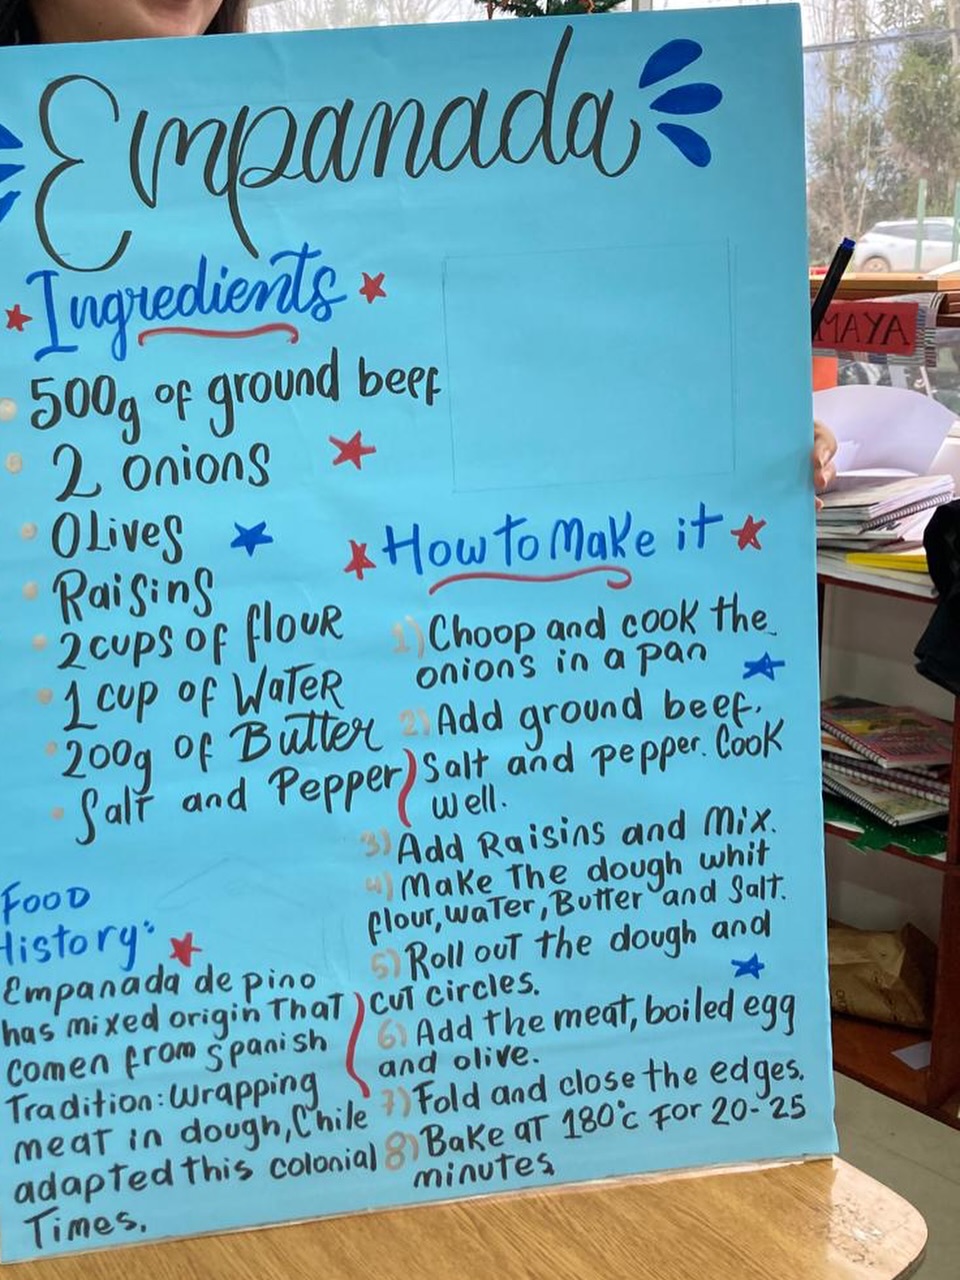 Empanada
Ingredients
500g of ground beef
2 onions
Olives
Raisins
2 cups of flour
1 cup of Water
200g of Butter
Salt and Pepper
Food
History:
Empanada de pino
has mixed origin That
comen from Spanish
Tradition: Wrapping
meat in dough, Chile
adapted this colonial
Times.
How to Make it
1) Choop and cook the
onions in a pan
2) Add ground beef.
Salt and pepper. Cook
well.
3) Add Raisins and Mix.
4) Make The dough whit
flour, water, Butter and Salt.
5) Roll out the dough and
cut circles.
6) Add the meat, boiled egg
and olive.
7) Fold and close the edges.
8) Bake at 180°c For 20-25
minutes
MAYA